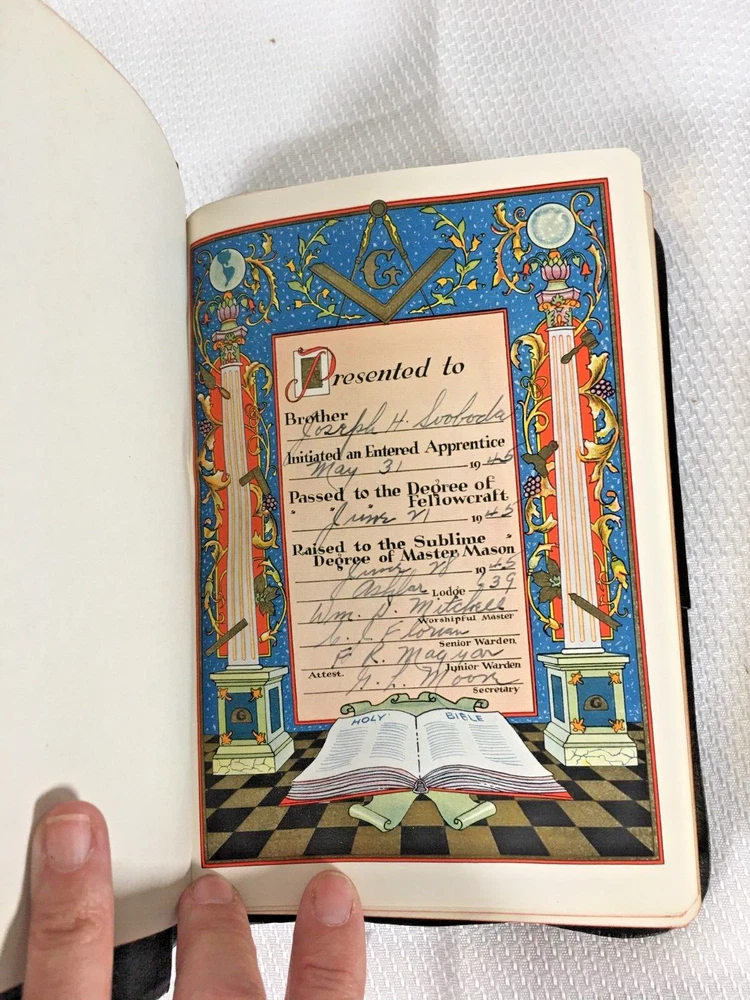 G
Presented to
Brother Joseph H. Svoboda
Initiated an Entered Apprentice
May 31 1945
Passed to the Degree of
" " Fellowcraft
June 21 1945
Raised to the Sublime "
Degree of Master Mason
June 28 1945
Ashlar Lodge 639
Wm. P. Mitchell
Worshipful Master
Florian
Senior Warden
F. R. Magyar
Attest. Junior Warden
G. L. Moore
Secretary
HOLY BIBLE
G G